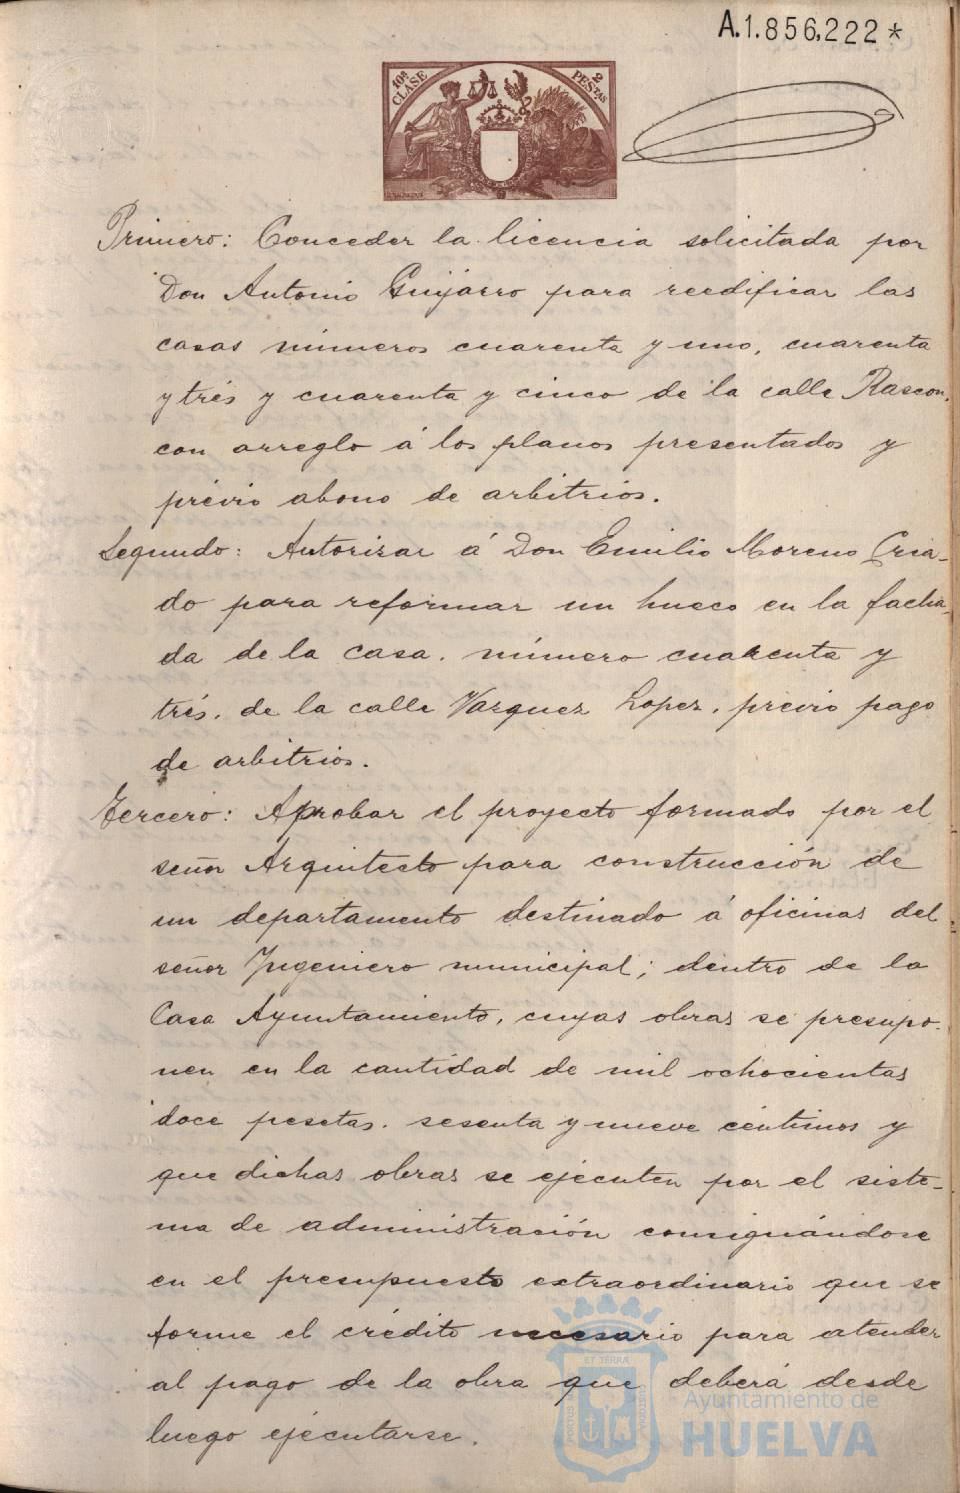 A.1.856,222*
10ª CLASE
2 PESTAS
Primero: Conceder la licencia solicitada por
Don Antonio Guijarro para reedificar las
casas números cuarenta y uno, cuarenta
y trés y cuarenta y cinco de la calle Rascon,
con arreglo á los planos presentados y
prévio abono de arbitrios.
Segundo: Autorizar á Don Emilio Moreno Cria-
do para reformar un hueco en la facha-
da de la casa. número cuarenta y
trés. de la calle Vazquez Lopez, prévio pago
de arbitrios.
Tercero: Aprobar el proyecto formado por el
señor Arquitecto para construcción de
un departamento destinado á oficinas del
señor Yngeniero municipal; dentro de la
Casa Ayuntamiento, cuyas obras se presupo-
nen en la cantidad de mil ochocientas
doce pesetas. sesenta y nueve céntimos y
que dichas obras se ejecuten por el siste-
ma de administración consignándose
en el presupuesto extraordinario que se
forme el crédito necesario para atender
al pago de la obra que deberá desde
luego ejecutarse.
ET TERRÆ
Ayuntamiento de
HUELVA